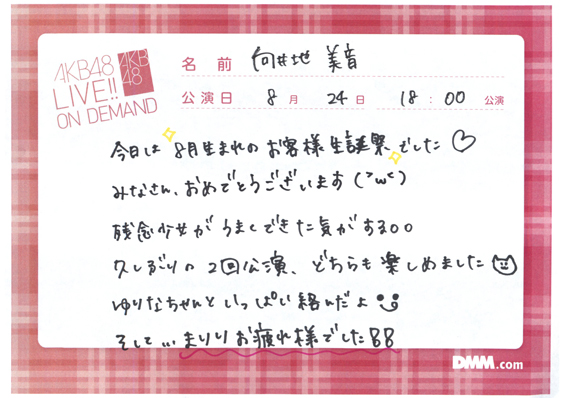 AKB48
LIVE!!
ON DEMAND
AKB
48
名 前 向井地 美音
公演日 8月 24日 18:00 公演
今日は 8月生まれの お客様生誕祭 でした♡
みなさん、おめでとうございます(>ω<)
残念少女が うまくできた気がする○○
久しぶりの 2回公演、どちらも楽しめました
ゆりなちゃんと いっぱい絡んだよ
そして… まりり お疲れ様でした
DMM.com